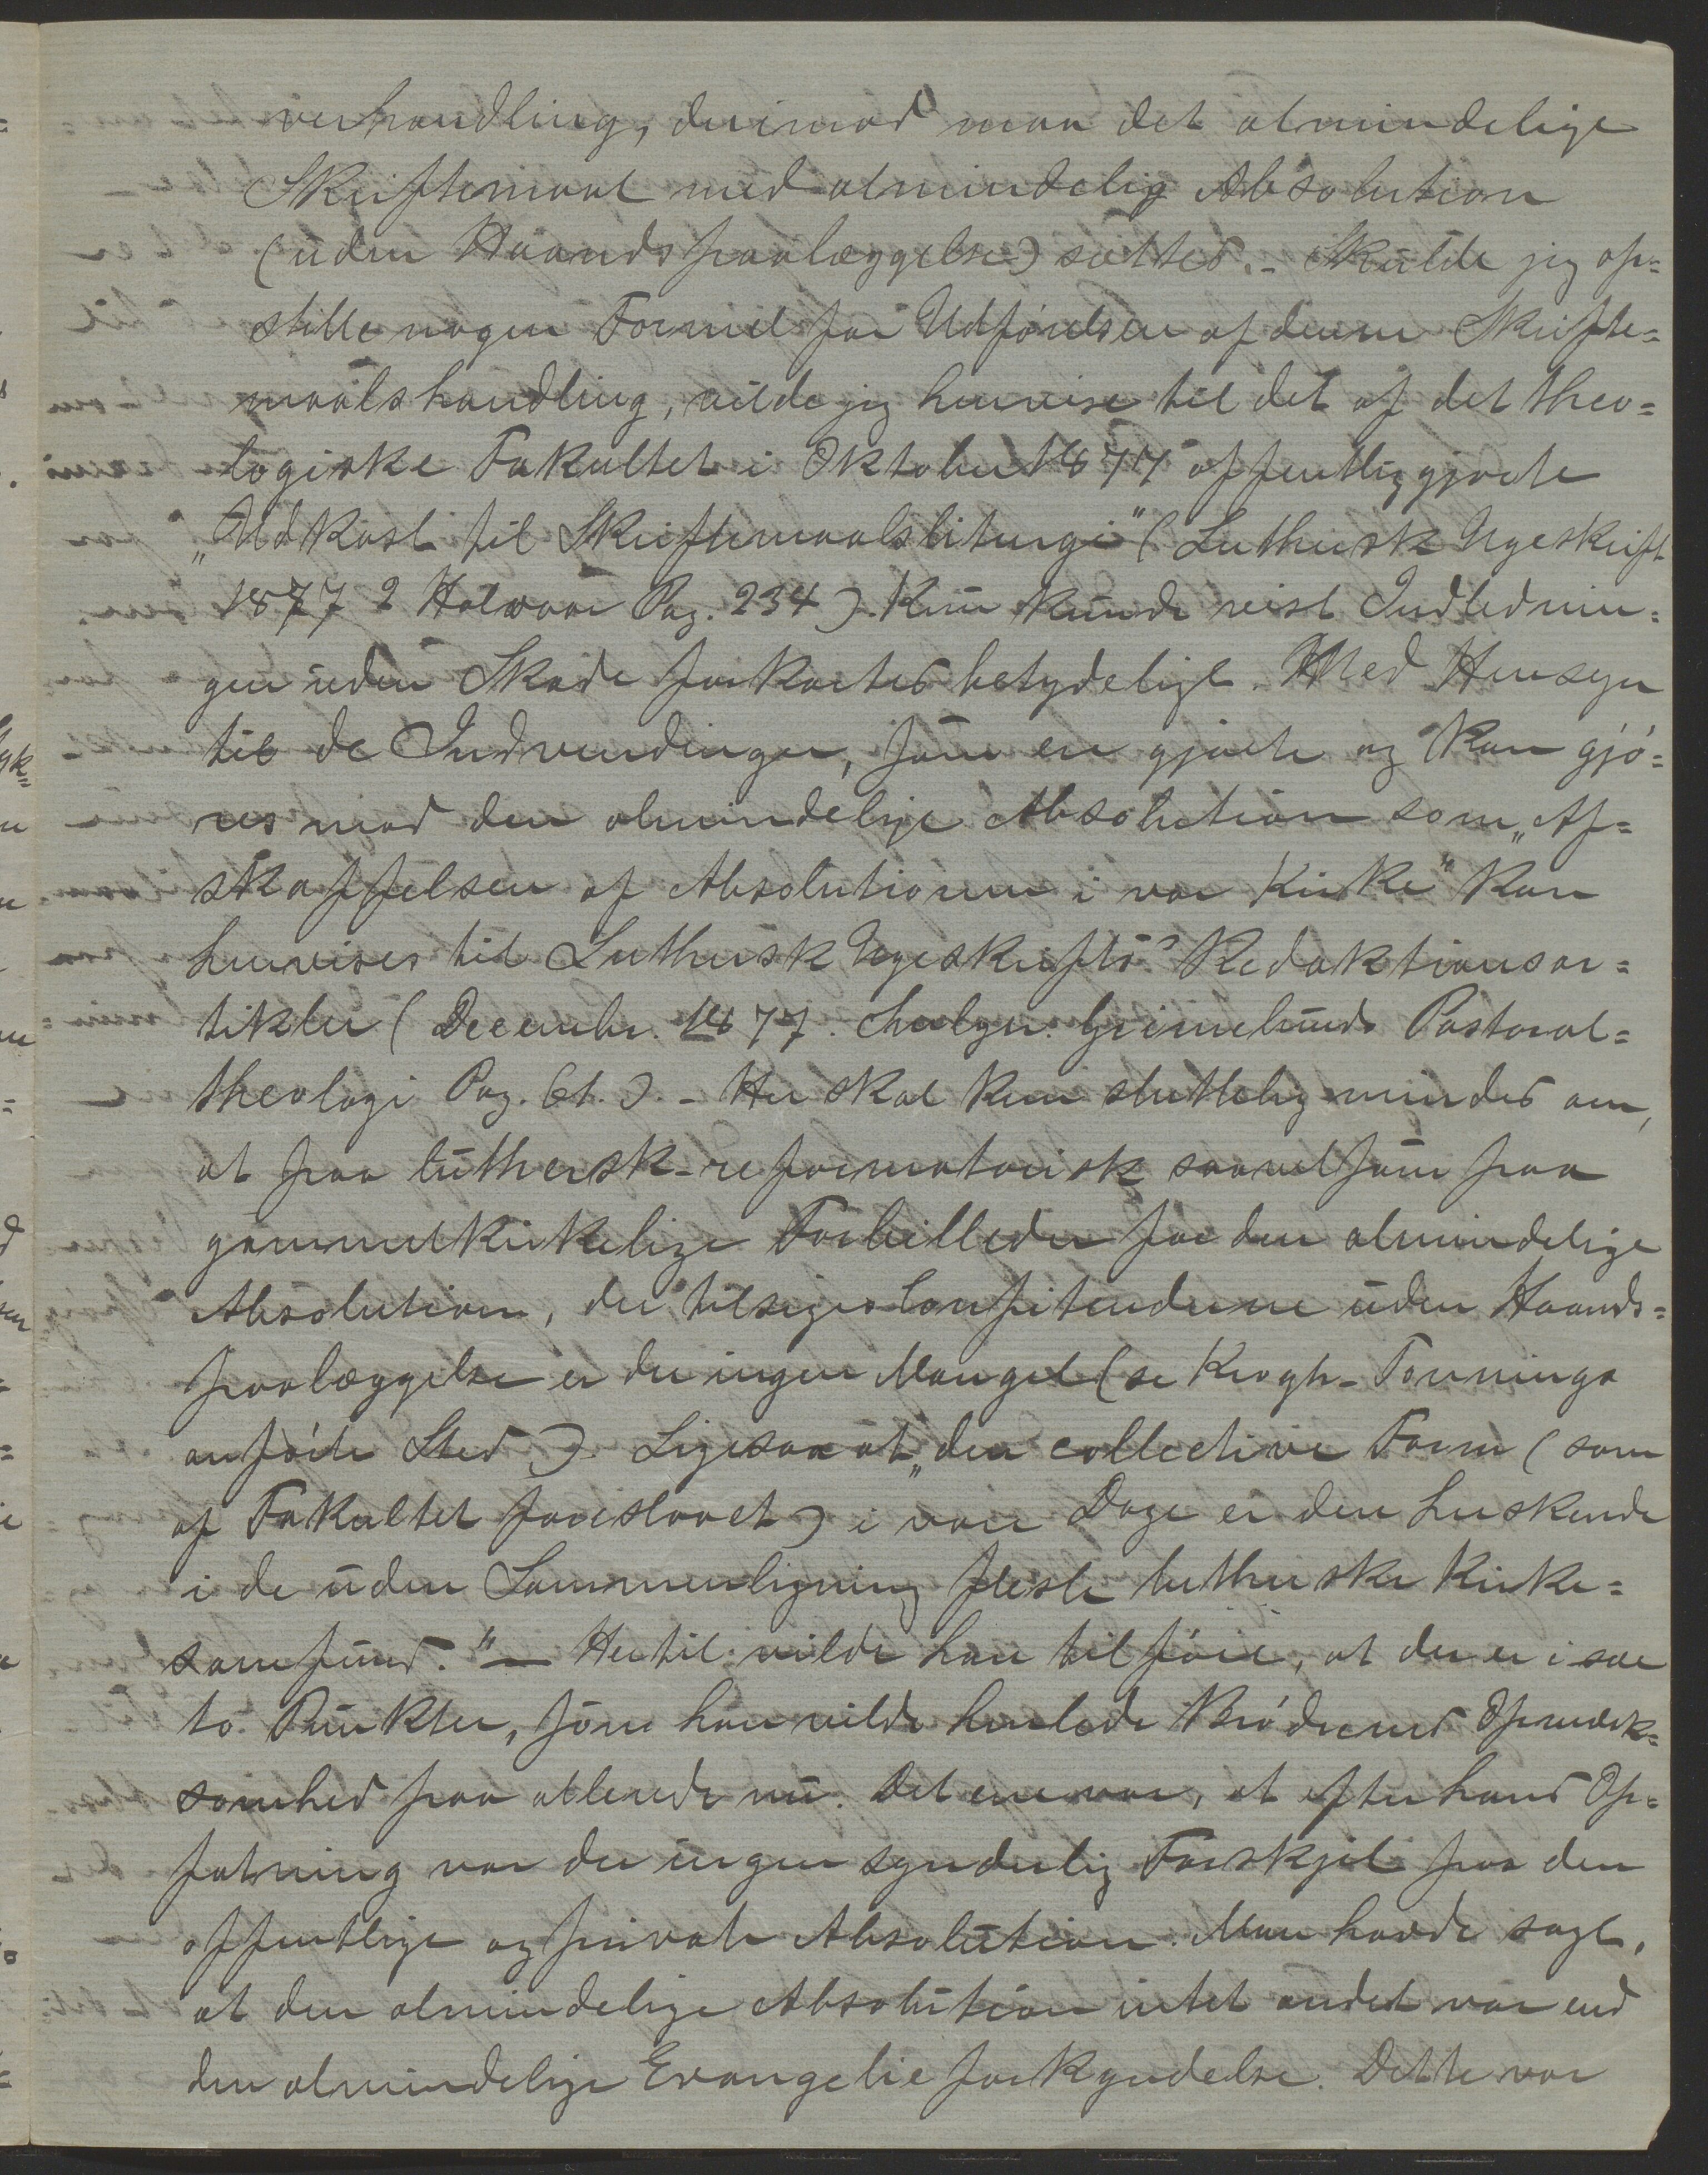 verhandling, derimod maa det almindelige
Skriftemaal med almindelig Absolution
(uden Haandspaalæggelse) sættes. - Skulde jeg op=
stille nogen Formel for Udførelsen af denne Skrifte=
maalshandling, vilde jeg henvise til det af det theo=
logiske Fakultet i Oktober 1877 offentliggjorte
„Udkast til Skriftemaalsliturgi" (Luthersk Ugeskrift
1877 2 Halvaar Pag. 234). Kun kunde vist Indlednin=
gen uden Skade forkortes betydeligt. Med Hensyn
til de Indvendinger, som er gjorte og kan gjö=
res mod den almindelige Absolution som „Af=
skaffelsen af Absolutionen i vor Kirke" kan
henvises til Luthersk Ugeskrifts Redaktionsar=
tikler (Decembr. 1877. Grimelunds Pastoral=
theologi Pag. 61.). - Her skal kun sluttelig mindes om,
at paa luthersk-reformatorisk saavelsom paa
gammelkirkelige Forbilleder for den almindelige
Absolution, der tilsiges Confitenderne uden Haands=
paalæggelse er der ingen Mangel (se Krogh-Tonnings
anförte Sted). Ligesaa at „den collective Form (som
af Fakultet foreslaaet) i vore Dage er den herskende
i de uden Sammenligning fleste lutherske Kirke=
samfund." — Hertil vilde han tilföie, at der er især
to Punkter, som han vilde henlede Brödrenes Opmærk=
somhed paa allerede nu. Det ene var, at efter hans Op=
fatning var der ingen synderlig Forskjel paa den
offentlige og private Absolution. Man havde sagt,
at den almindelige Absolution intet andet var end
den almindelige Evangelieforkyndelse. Dette var